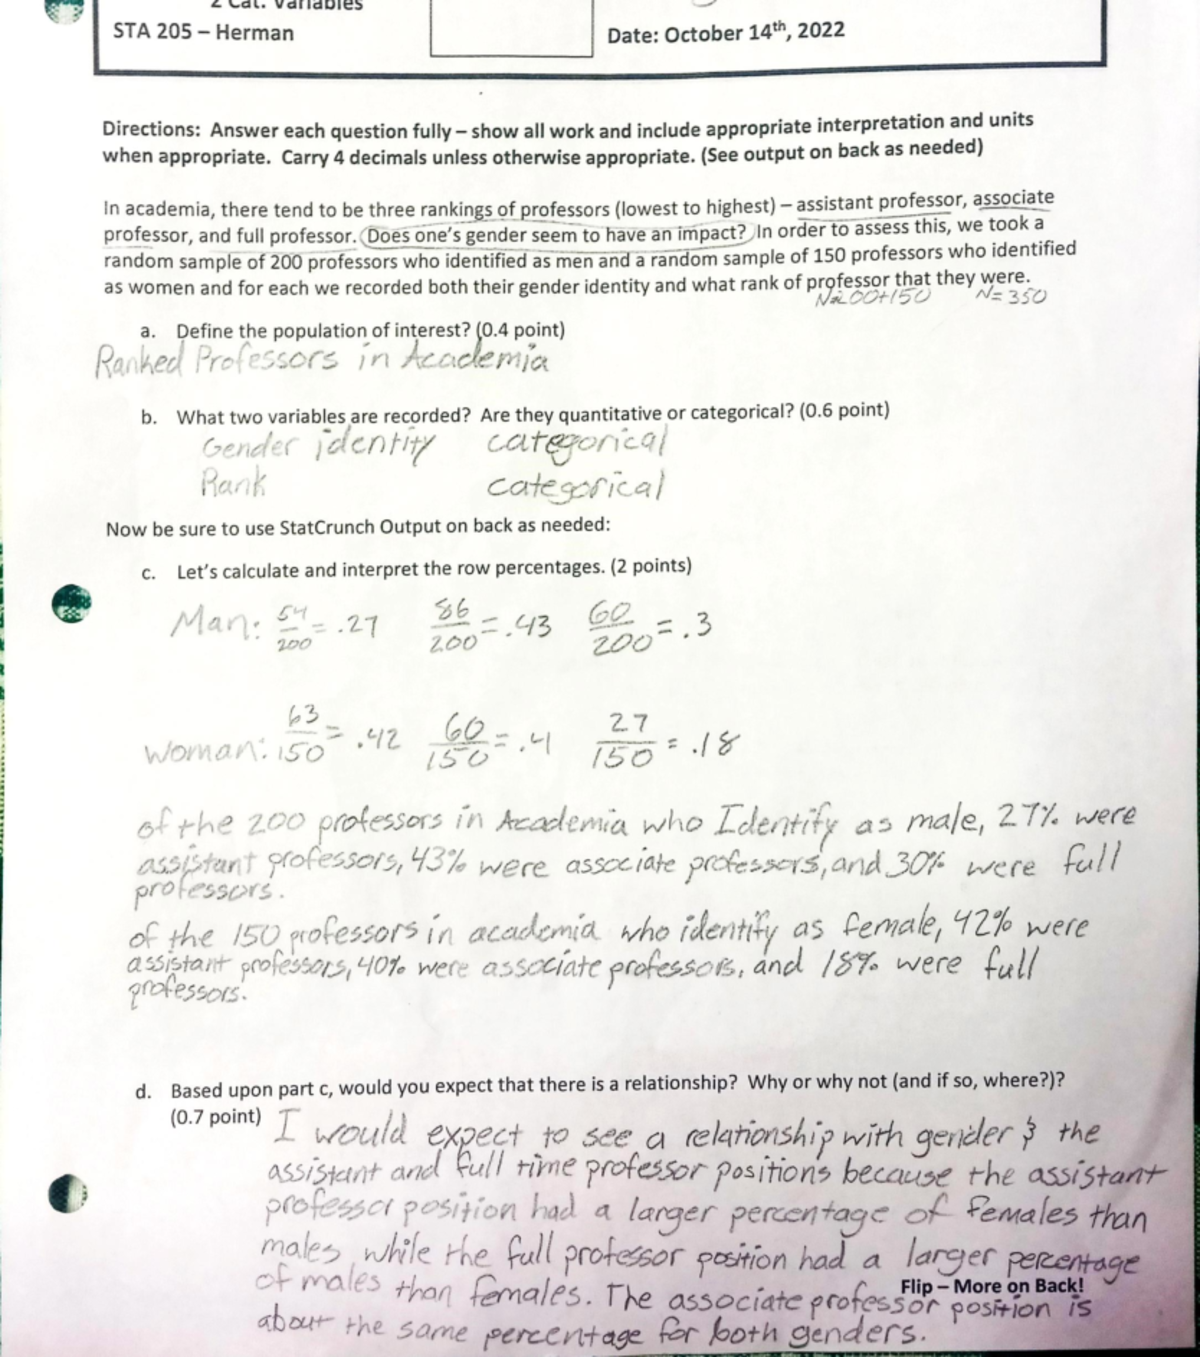 2 Cat. Variables
STA 205 – Herman
Date: October 14th, 2022
Directions: Answer each question fully – show all work and include appropriate interpretation and units
when appropriate. Carry 4 decimals unless otherwise appropriate. (See output on back as needed)
In academia, there tend to be three rankings of professors (lowest to highest) – assistant professor, associate
professor, and full professor. Does one's gender seem to have an impact? In order to assess this, we took a
random sample of 200 professors who identified as men and a random sample of 150 professors who identified
as women and for each we recorded both their gender identity and what rank of professor that they were.
N=200+150 N=350
a. Define the population of interest? (0.4 point)
Ranked Professors in Academia
b. What two variables are recorded? Are they quantitative or categorical? (0.6 point)
Gender identity categorical
Rank categorical
Now be sure to use StatCrunch Output on back as needed:
c. Let's calculate and interpret the row percentages. (2 points)
Man: 54/200 = .27 86/200 = .43 60/200 = .3
Woman: 63/150 = .42 60/150 = .4 27/150 = .18
of the 200 professors in Academia who Identify as male, 27% were
assistant professors, 43% were associate professors, and 30% were full
professors.
of the 150 professors in academia who identify as female, 42% were
assistant professors, 40% were associate professors, and 18% were full
professors.
d. Based upon part c, would you expect that there is a relationship? Why or why not (and if so, where?)?
(0.7 point) I would expect to see a relationship with gender & the
assistant and full time professor positions because the assistant
professor position had a larger percentage of females than
males while the full professor position had a larger percentage
of males than females. The associate professor position is
Flip – More on Back!
about the same percentage for both genders.